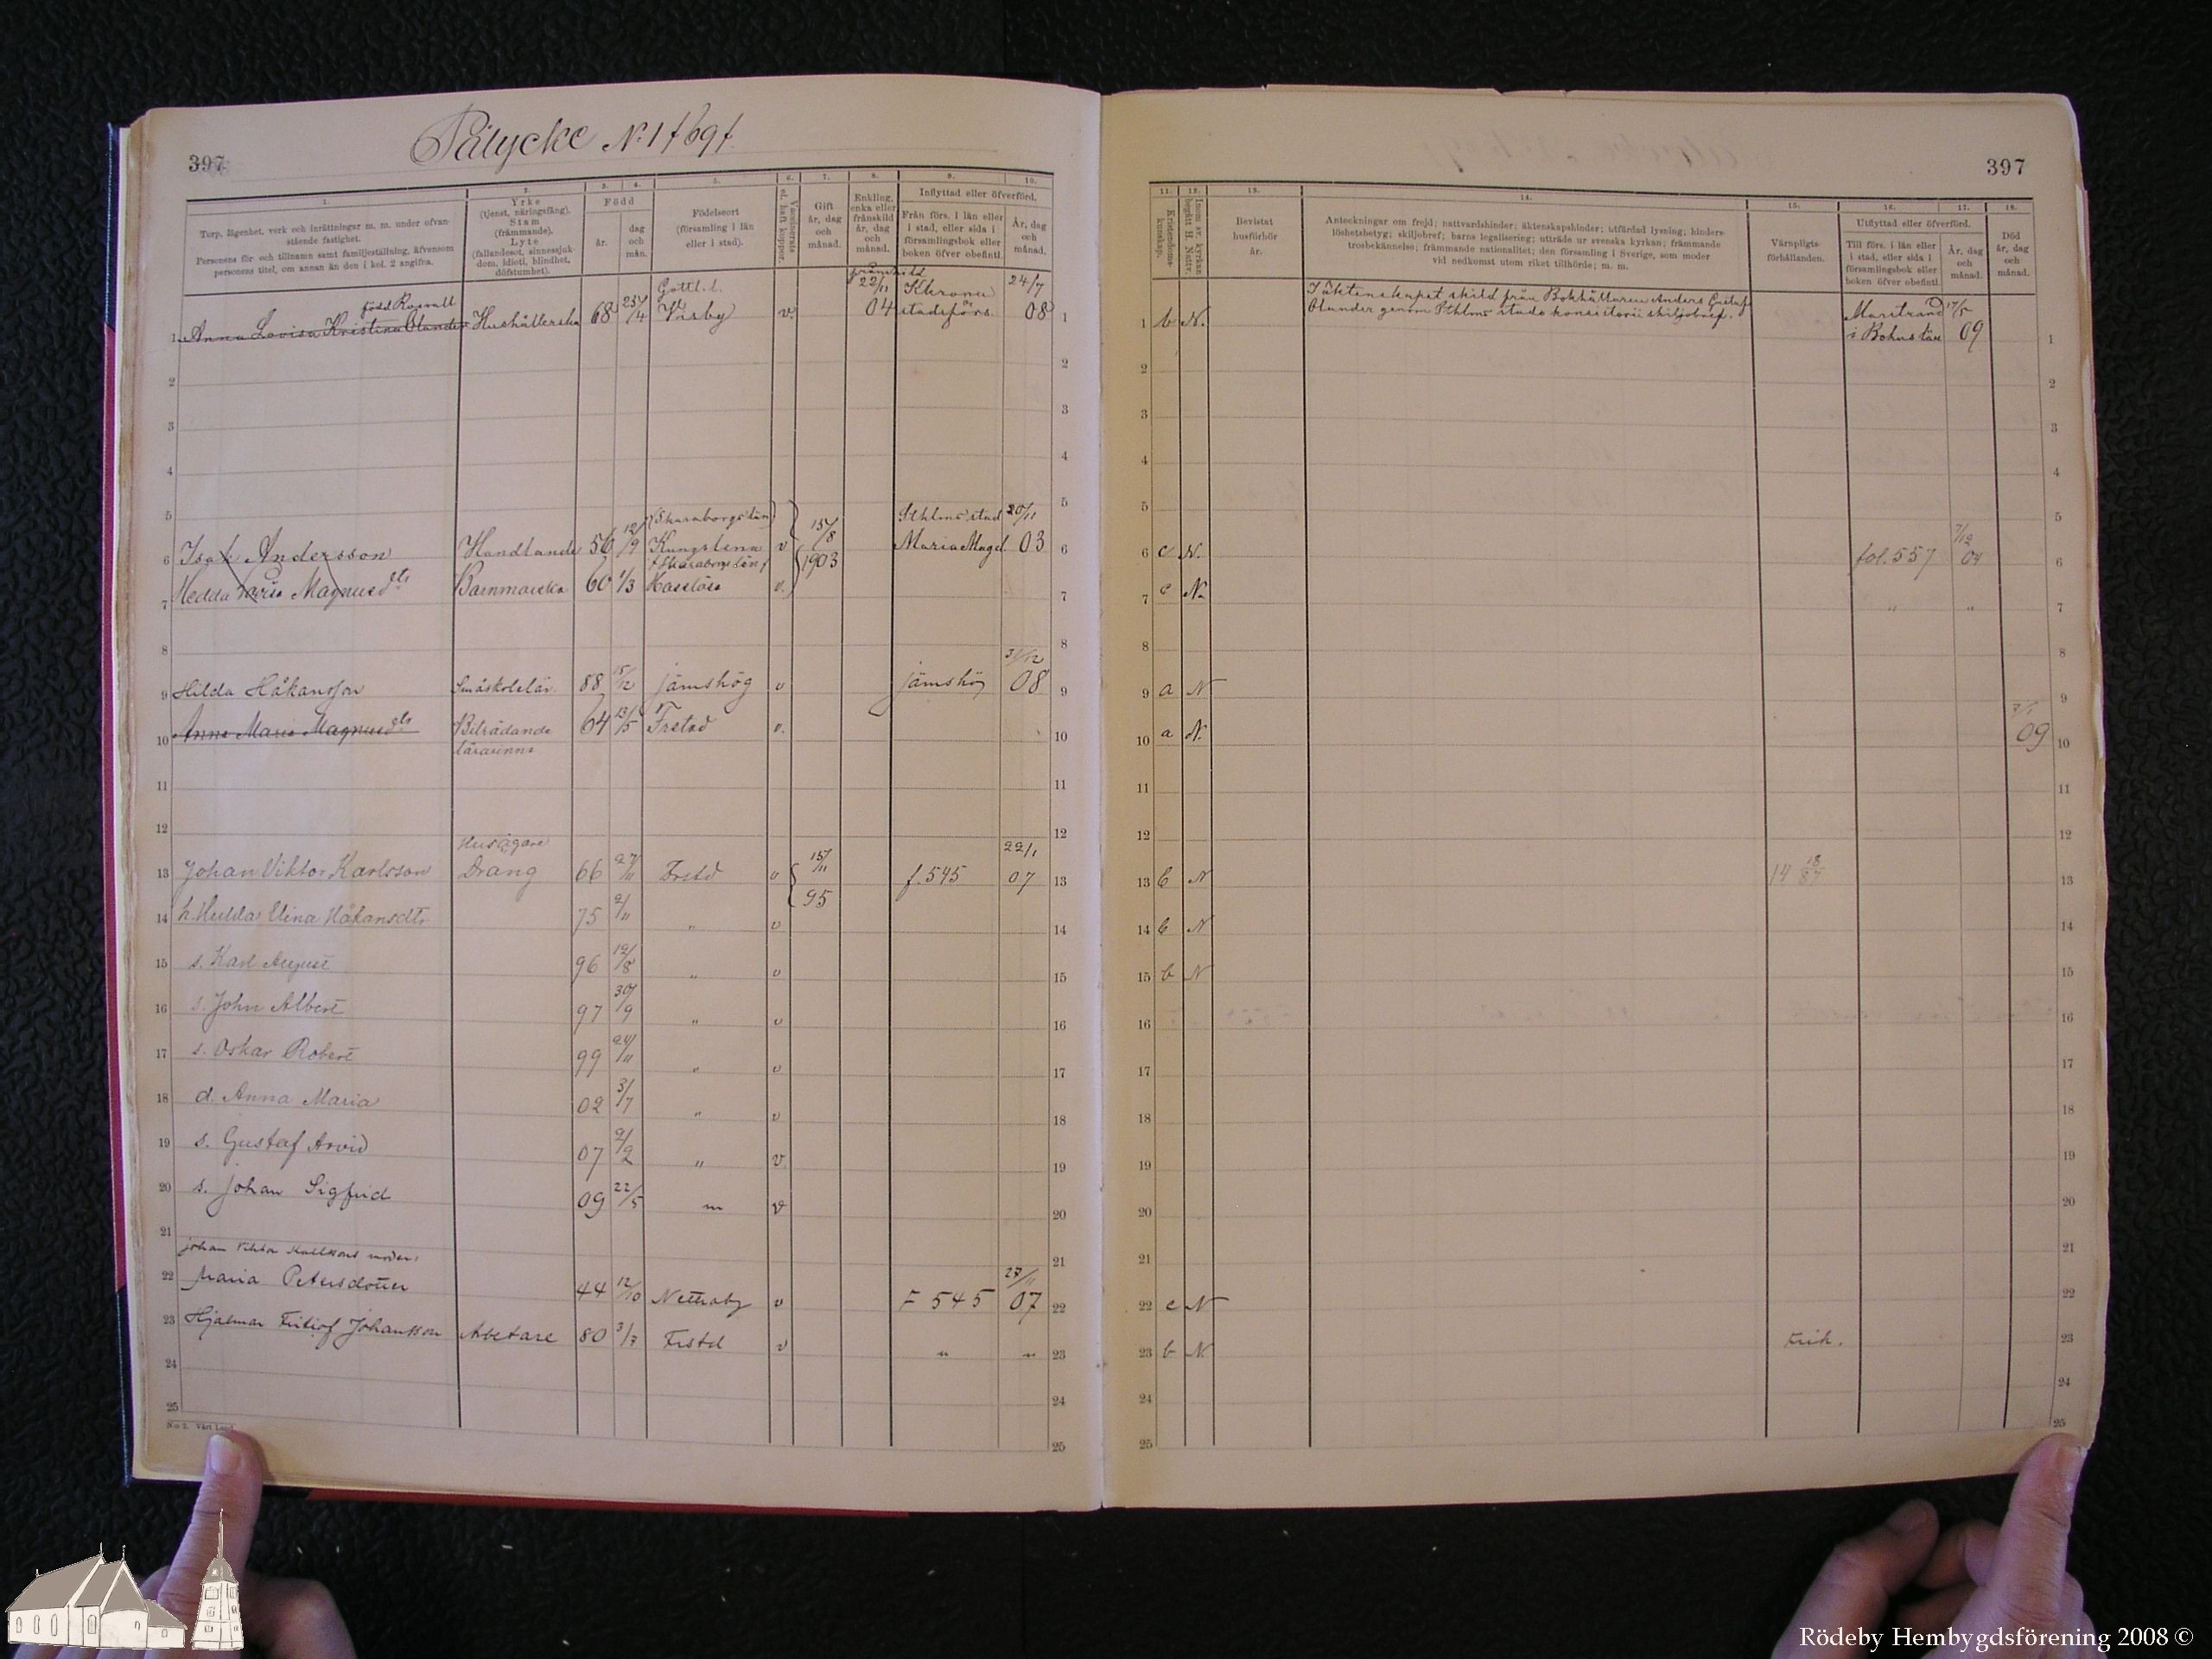 397
Pålycke No 1
397
1.
2.
3.
4.
5.
6.
7.
8.
9.
10.
Torp, lägenhet, verk och inrättningar m. m. under ofvan-
stående fastighet.
Personens för- och tillnamn samt familjeställning, äfvensom
personens titel, om annan än den i kol. 2 angifna.
Yrke
(tjenst, näringsfång).
Stam
(främmande).
Lyte
(fallandesot, sinnessjuk-
dom, idioti, blindhet,
döfstumhet).
Född
år.
dag
och
mån.
Födelseort
(församling i län
eller i stad).
Vaccinerats
el. haft koppor.
Gift
år, dag
och
månad.
Enkling,
enka eller
frånskild
år, dag
och
månad.
Inflyttad eller öfverförd.
Från förs. i län eller
i stad, eller sida i
församlingsbok eller
boken öfver obefintl.
År, dag
och
månad.
11.
12.
13.
14.
15.
16.
17.
18.
Kristendoms-
kunskap.
Inom sv. kyrkan
begått H. Nattv.
Bevistat
husförhör
år.
Anteckningar om frejd; nattvardshinder; äktenskapshinder; utfärdad lysning; hinders-
löshetsbetyg; skiljobref; barns legalisering; utträde ur svenska kyrkan; främmande
trosbekännelse; främmande nationalitet; den församling i Sverige, som moder
vid nedkomst utom riket tillhörde; m. m.
Värnpligts-
förhållanden.
Utflyttad eller öfverförd.
Till förs. i län eller
i stad, eller sida i
församlingsbok eller
boken öfver obefintl.
År, dag
och
månad.
Död
år, dag
och
månad.
född Rosvall frånskild Gottl. l. 24/7
1 Anna Lovisa Kristina Olander Hushållerska 68 25/4 Visby v. 22/11 04 stadsförs. 08 1
1 b N. I äktenskapet skild från Bokhållaren Anders Gustaf Marstrand 17/5
Olander genom Sthlms stads konsistorii skiljobref. i Bohus län 09 1
(Skaraborgs län) 15/8 Sthlms stad 20/11
6 Isak Andersson Handlande 56 12/9 Kungslena v 1903 Maria Magd. 03 6
6 c N. fol. 557 7/12 04 6
(Skaraborgs län)
7 Hedda Maria Magnusdtr Barnmorska 60 1/3 Hasslösa v. 7
7 c N. " " 7
9 Hilda Håkansson Småskolelär. 88 15/12 Jämshög v Jämshög 31/12 08 9
9 a N 9
10 Anna Maria Magnusdtr Biträdande 64 13/5 Fristad v. 10
lärarinna
10 a N. 09 10
Husägare
13 Johan Viktor Karlsson Dräng 66 27/11 Frstd v 15/11 95 f. 545 22/1 07 13
13 b N 14 18/87 13
14 h. Hedda Elina Håkansdtr 75 9/11 " v 14
14 b N 14
15 s. Karl August 96 12/8 " v 15
15 b N 15
16 s. John Albert 97 30/9 " v 16
17 s. Oskar Robert 99 24/11 " v 17
18 d. Anna Maria 02 3/7 " v 18
19 s. Gustaf Arvid 07 9/2 " v. 19
20 s. Johan Sigfrid 09 22/5 " v 20
Johan Viktor Karlssons moder:
22 Maria Petersdotter 44 12/10 Nettraby v F 545 27/11 07 22
22 c N 22
23 Hjalmar Fritiof Johansson Arbetare 80 3/7 Frstd v " " 23
23 b N. frik. 23
No 2. Vårt Land
Rödeby Hembygdsförening 2008 ©